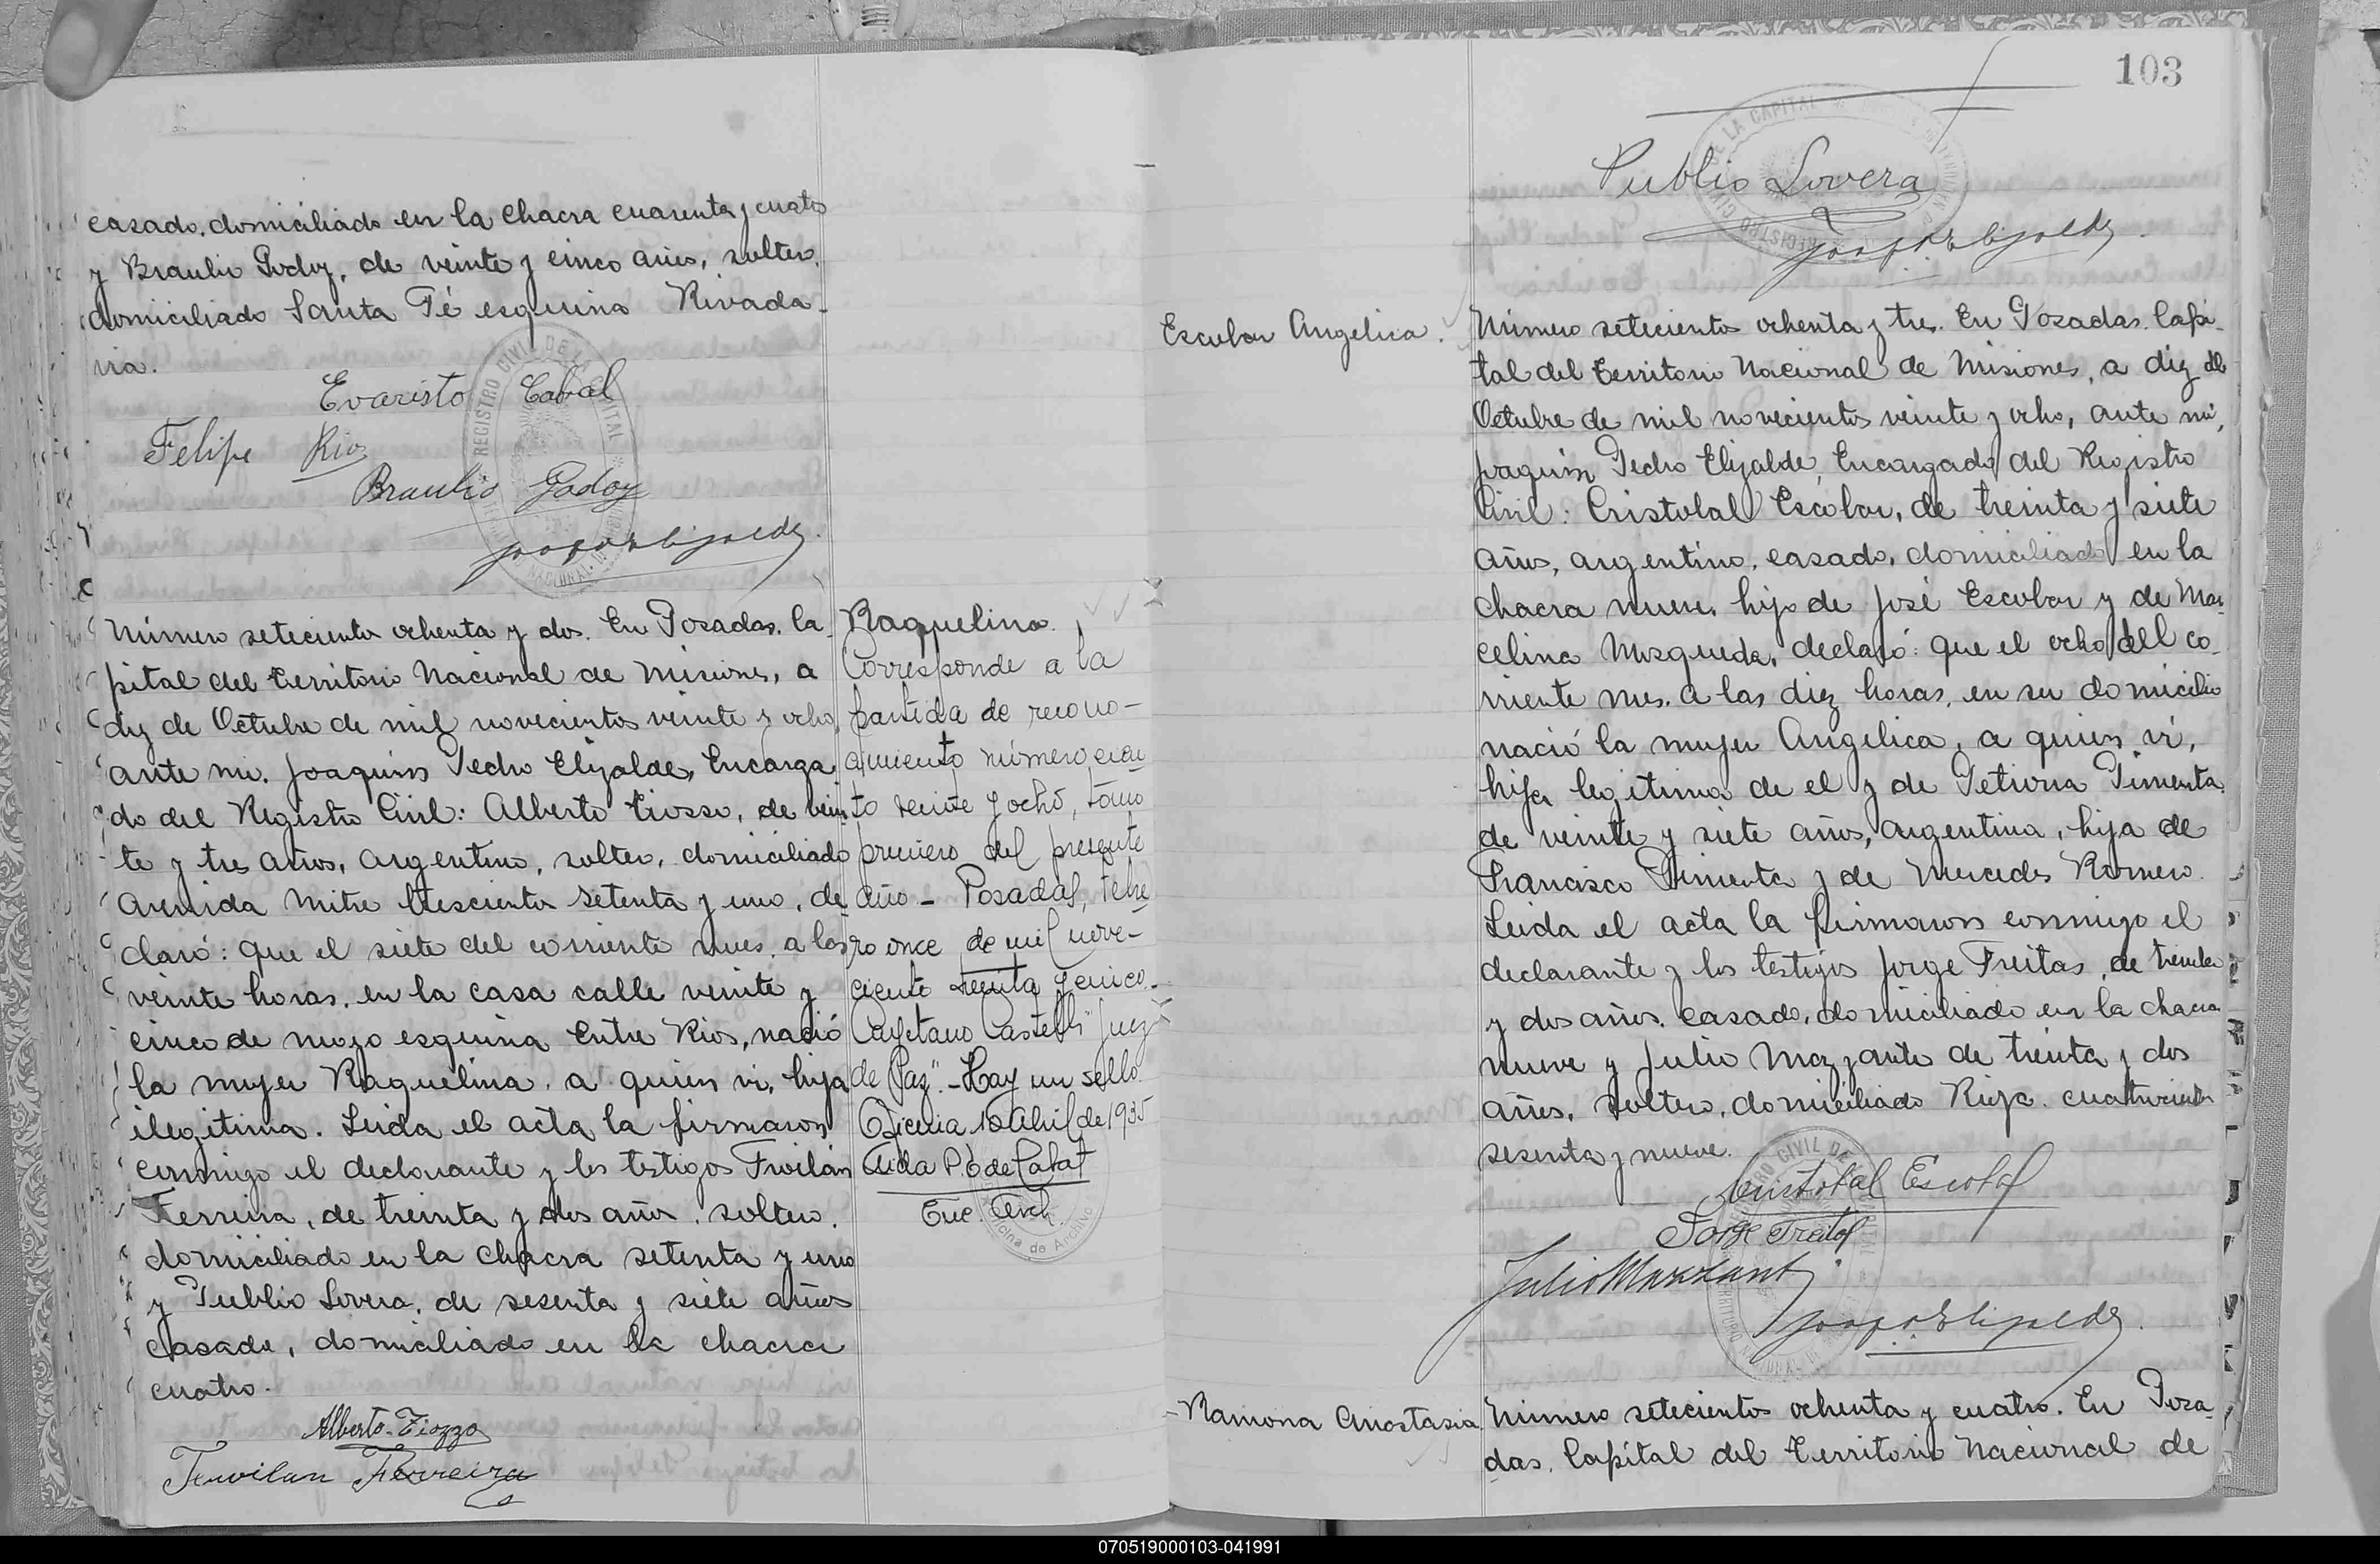 casado, domiciliado en la chacra cuarenta y cuatro
y Braulio Godoy, de veinte y cinco años, soltero,
domiciliado Santa Fé esquina Rivada-
via.
Evaristo Cabal
Felipe Rios
Braulio Godoy
Número setecientos ochenta y dos. En Posadas, Ca-
pital del Territorio Nacional de Misiones, a
diez de Octubre de mil novecientos veinte y ocho,
ante mi, Joaquin Pedro Elizalde, Encarga-
do del Registro Civil: Alberto Tiosso, de vein-
te y tres años, argentino, soltero, domiciliado
Avenida Mitre trescientos setenta y uno, de-
claró: que el siete del corriente mes, a las
veinte horas, en la casa calle veinte y
cinco de mayo esquina Entre Rios, nació
la mujer Raquelina, a quien vi, hija
ilegitima. Leida el acta la firmaron
conmigo el declarante y los testigos Froilán
Ferreira, de treinta y dos años, soltero,
domiciliado en la chacra setenta y uno
y Publio Lovera, de sesenta y siete años
casado, domiciliado en la chacra
cuatro.
Alberto Tiozzo
Froilan Ferreira
Raquelina.
Corresponde a la
partida de recono-
cimiento número cien-
to veinte y ocho, tomo
primero del presente
año - Posadas, Febre-
ro once de mil nove-
ciento treinta y cinco.
Cayetano Castelli "Juez
de Paz". - Hay un sello
Oficina 10 Abril de 1935
Aida P. de Cabat
Enc. Arch.
Oficina de Archivo
103
Publio Lovera
Escobar Angelica.
Número setecientos ochenta y tres. En Posadas, Capi-
tal del Territorio Nacional de Misiones, a diez de
Octubre de mil novecientos veinte y ocho, ante mi,
Joaquin Pedro Elizalde, Encargado del Registro
Civil: Cristobal Escobar, de treinta y siete
años, argentino, casado, domiciliado en la
chacra nueve, hijo de José Escobar y de Mar-
celina Mosqueda, declaró: que el ocho del co-
rriente mes, a las diez horas, en su domicilio
nació la mujer Angelica, a quien vi,
hija legitima de el y de Petrona Pimenta,
de veinte y siete años, argentina, hija de
Francisco Pimenta y de Mercedes Romero.
Leida el acta la firmaron conmigo el
declarante y los testigos Jorge Freitas, de treinta
y dos años, casado, domiciliado en la chacra
nueve y Julio Mazzante de treinta y dos
años, soltero, domiciliado Rioja cuatrocientos
sesenta y nueve.
Cristobal Escobar
Jorge Freitas
Julio Mazzanti
- Ramona Anastasia
Número setecientos ochenta y cuatro. En Posa-
das, Capital del Territorio Nacional de
070519000103-041991